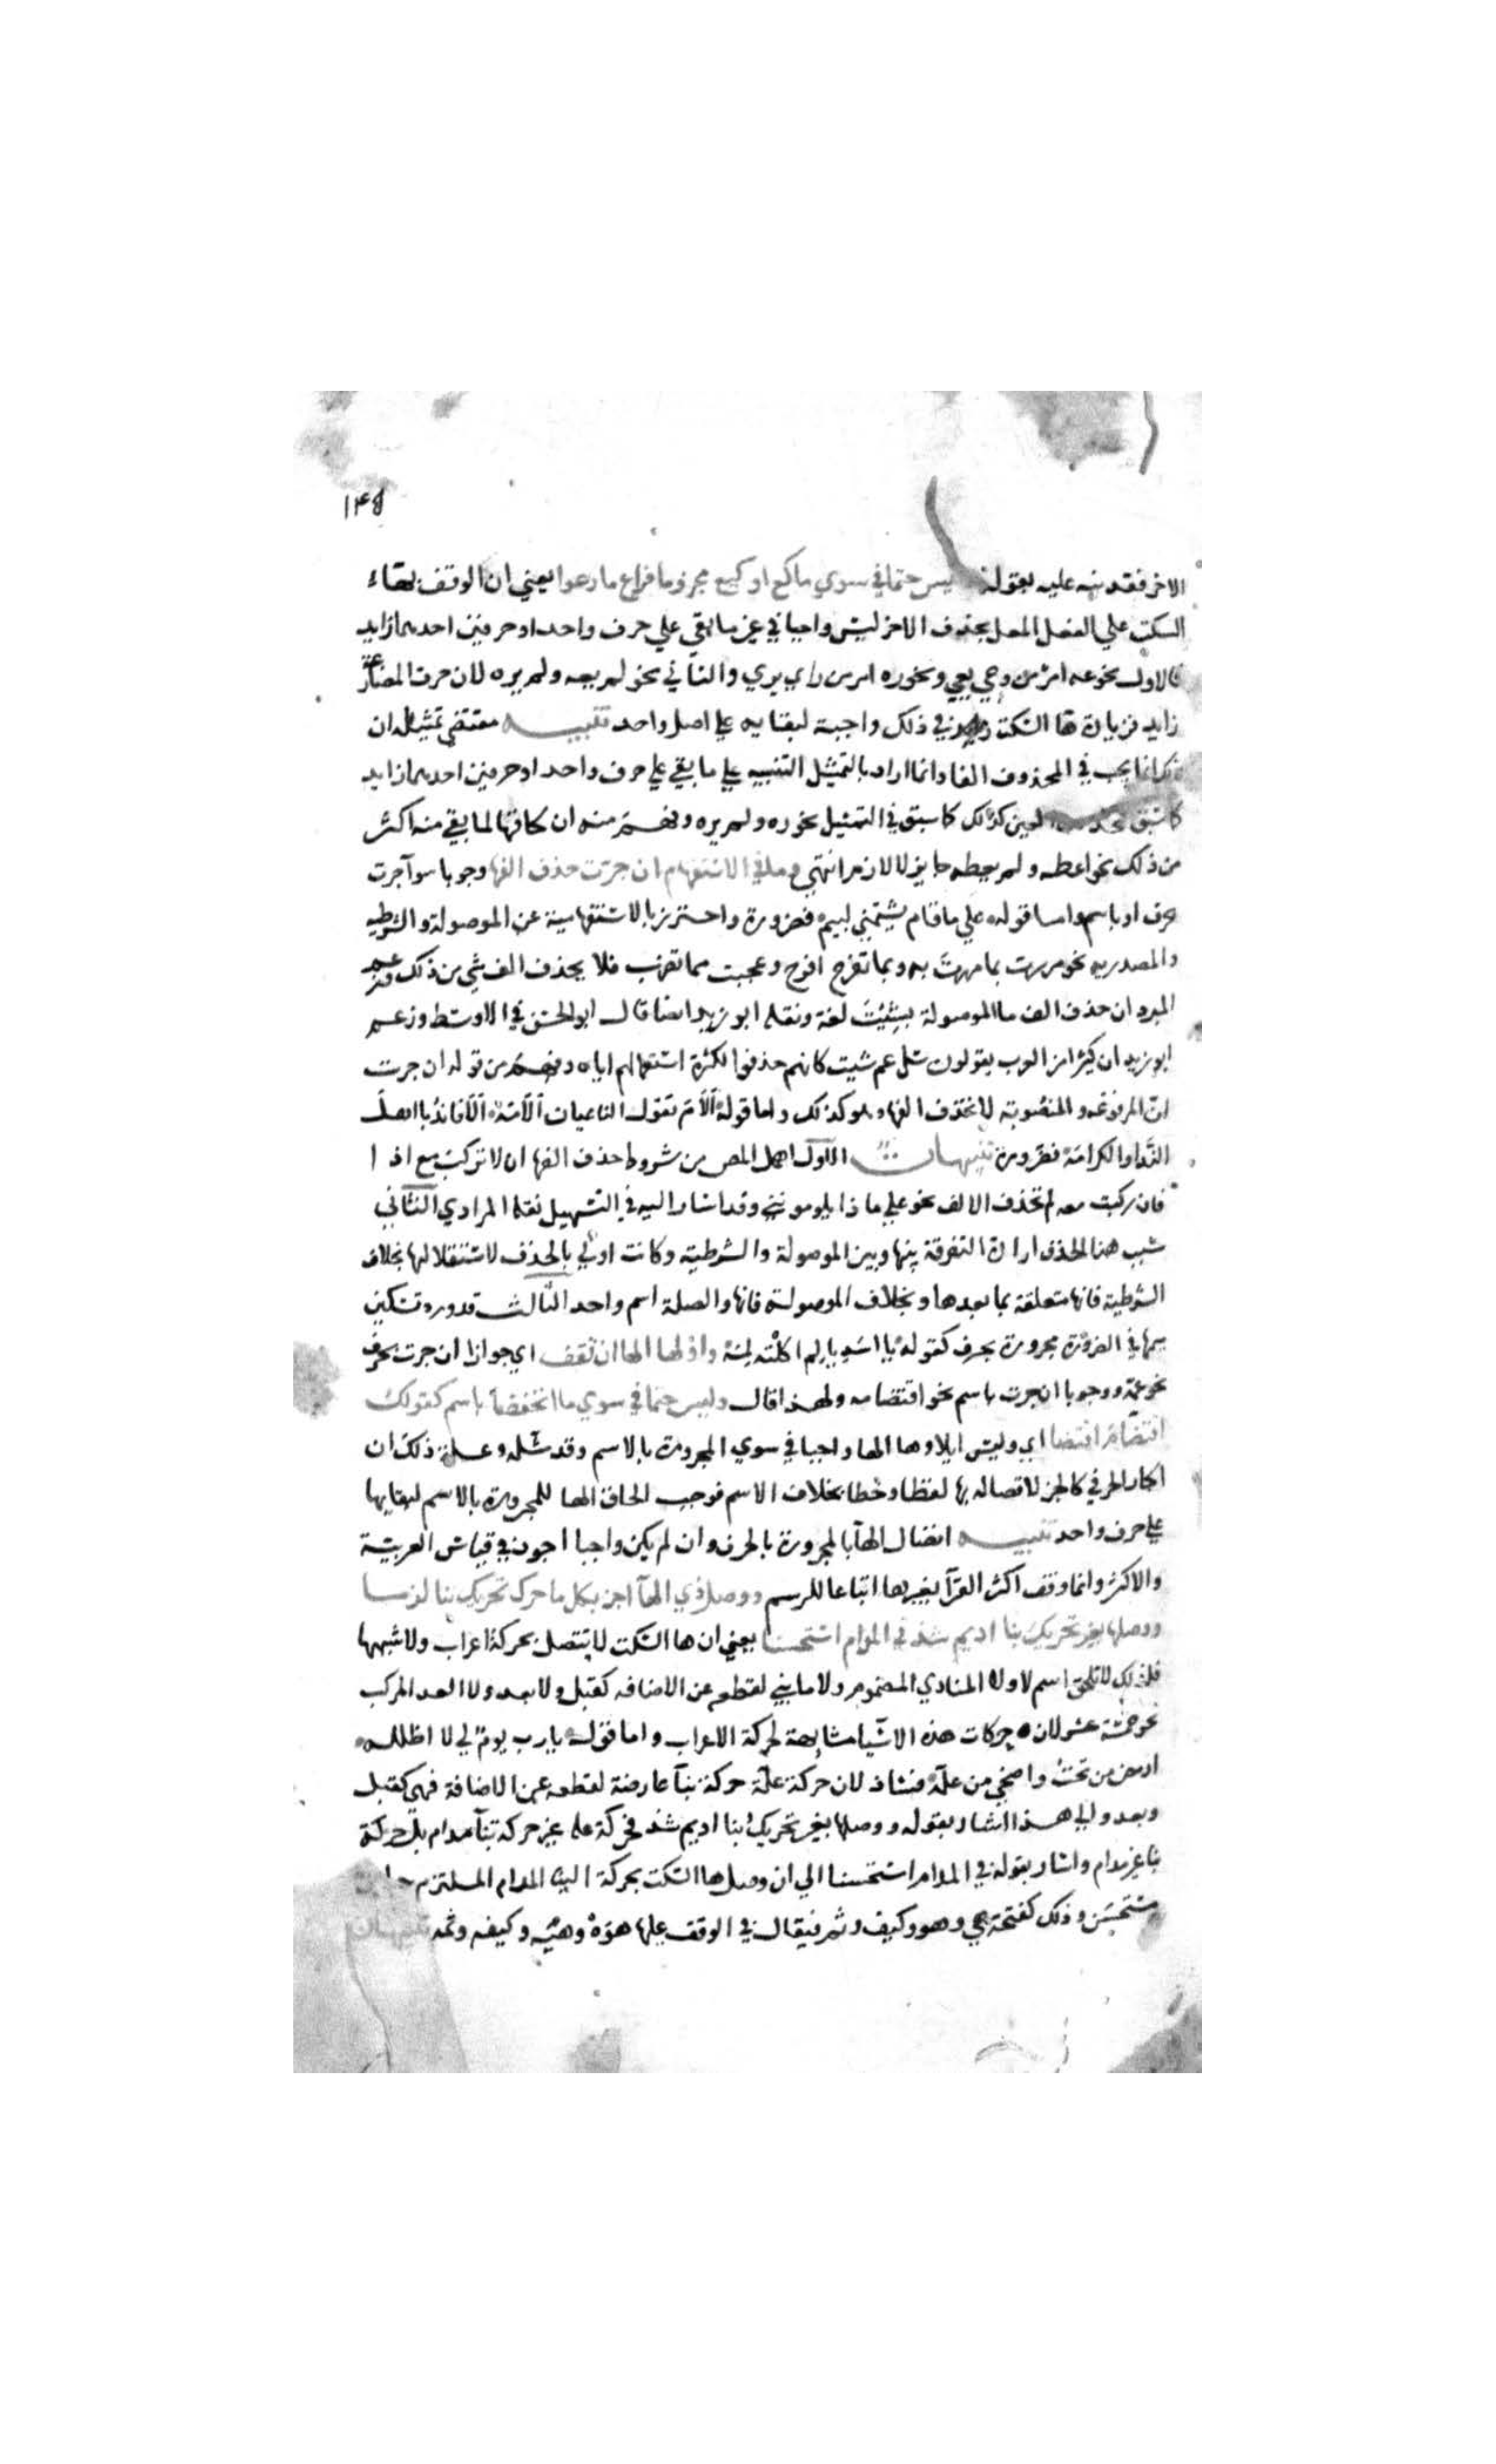 ١٣٨
الاخر فقد نبه عليه بقوله وليس حتما في سوي ما كع او كيع مجزوما فراع ما رعوا يعني ان الوقف بهاء
السكت علي الفعل المعل بحذف الاخر ليس واجبا في غير ما بقي علي حرف واحد او حرفين احدهما زايد
فالاول نحو عه امر من وعي يعي ونحو ره امر من راي يري والثاني نحو لم يعه ولم يره لان حرف المضارعة
زايد فزيادة ها السكت في ذلك واجبة لبقايه علي اصل واحد تنبيه مقتضي تمثيله ان
ذلك انما يجب في المحذوف الفا وانما اراد بالتمثيل التنبيه علي ما بقي علي حرف واحد او حرفين احدهما زايد
كما سبق العين كذلك كما سبق في التمثيل بنحو ره ولم يره وفهم منه ان لحاقها لما بقي منه اكثر
من ذلك نحو اعطه ولم يعطه جايز لا لازم انتهي وما في الاستفهام ان جرت حذف الفها وجوبا سوآ جرت
بحرف او باسم واما قوله علي ما قام يشتمني لييم فضرورة واحترز بالاستفهامية عن الموصولة والشرطيه
والمصدريه نحو مررت بما مررت به وبما تفرح افرح وعجبت مما تضرب فلا يحذف الف شي من ذلك وزعم
المبرد ان حذف الف ما الموصولة بشئت لغة ونقله ابو زيد ايضا قال ابو الحسن في الاوسط وزعم
ابو زيد ان كثيرا من العرب يقولون سل عم شيت كانهم حذفوا لكثرة استعمالهم اياه وفهم من قوله ان جرت
ان المرفوعه والمنصوبة لا تحذف الفها وهو كذلك واما قوله ألام تقول الناعيات ألامه ألا فاندبا اهل
النداو الكرامة فضرورة تنبيهات الاول اهمل المص من شروط حذف الفها ان لا تركب مع اذا
فان ركبت معه لم تحذف الالف نحو علي ما ذا يلومونني وقد اشار اليه في التسهيل نقله المرادي الثاني
سبب هذا الحذف ارادة التفرقة بينها وبين الموصولة والشرطية وكانت اولي بالحذف لاستقلالها بخلاف
الشرطية فانها متعلقة بما بعدها وبخلاف الموصولة فانها والصلة اسم واحد الثالث قد ورد تسكين
ميمها في الضرورة مجرورة بحرف كقوله يا اسديا لم اكلته لمه واولها الها ان تقف اي جوازا ان جرت بحرف
نحو عمه ووجوبا ان جرت باسم نحو اقتضا مه ولهذا قال وليس حتما في سوي ما انخفضا باسم كقولك
اقتضاء م اقتضا اي وليس ايلاوها الها واجبا في سوي المجرورة بالاسم وقد مثله وعلة ذلك ان
الجار الحرفي كالجز لاتصاله بها لفظا وخطا بخلاف الاسم فوجب الحاق الها للمجرورة بالاسم لبقايها
علي حرف واحد تنبيه اتصال الهآ بالمجرورة بالحرف وان لم يكن واجبا اجود في قياس العربية
والاكثر وانما وقف اكثر القرآ بغير ها اتباعا للرسم ووصل ذي الهآ اجز بكل ما حرك تحريك بنا لزما
ووصلها بغير تحريك بنا اديم شذ في المدام استحسنا يعني ان ها السكت لا تتصل بحركة اعراب ولا شبيهها
فلذلك لا تلحق اسم لا ولا المنادي المضموم ولا ما بني لقطعه عن الاضافه كقبل ولا بعد ولا العدد المركب
نحو خمسة عشر لان حركات هذه الاشيا مشابهة لحركة الاعراب واما قوله يا رب يوم لي لا اظلله
ارمض من تحت واضحي من عله فشاذ لان حركة عله حركة بنآ عارضة لقطعه عن الاضافة فهي كقبل
وبعد والي هذا اشار بقوله ووصلها بغير تحريك بنا اديم شذ فحركة عله غير حركة بنآ مدام بل حركة
بنا غير مدام واشار بقوله في المدام استحسنا الي ان وصل ها السكت بحركة البنا المدام الملتزم جايز
مستحسن وذلك كفتحة هي وهو وكيف وثم فيقال في الوقف عليها هوه وهيه وكيفه وثمه تنبيهان